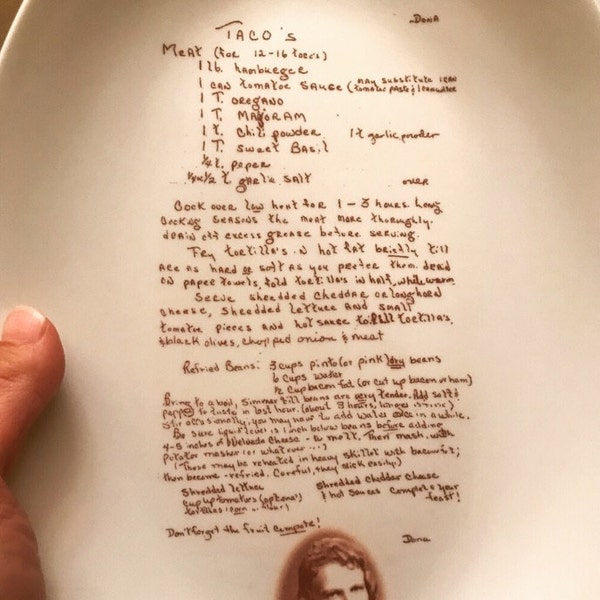 ~Dona
TACO's
Meat (for 12-16 taco's)
1 lb. hamburger
1 can tomatoe sauce (may substitute 1 can
tomatoe paste & 1 can water
1 T. oregano
1 T. Majoram
1 t. chili powder 1 t garlic powder
1 T. sweet Basil
1/4 t. peper
1/2 t garlic salt over
Cook over low heat for 1 - 3 hours. Long
cooking seasons the meat more thoroughly.
drain off excess grease before serving.
Fry tortilla's in hot fat briefly till
are as hard or soft as you prefer them. drain
on paper towels, fold tortilla's in half, while warm
Serve shredded cheddar or longhorn
cheese, shredded lettuce and small
tomatoe pieces and hot sauce to fill tortilla's.
& black olives, chopped onion & meat
Refried Beans: 3 cups pinto (or pink) dry beans
6 cups water
1/2 cup bacon fat (or cut up bacon or ham)
Bring to a boil, simmer till beans are very tender. Add salt &
pepper to taste in last hour. (about 3 hours, longer is fine)
Stir occassionally, you may have to add water once in a while.
Be sure liquid level is 1 inch below beans before adding
4-5 inches of Velveeta Cheese - to melt. Then mash with
potatoe masher (or whatever...)
(These may be reheated in heavy skillet with bacon fat;
then become -refried. Careful, they stick easily)
Shredded lettuce Shredded cheddar cheese
cut up tomatoes (optional) & hot sauces complete your
tortillas (corn or flour) feast!
Don't forget the fruit compote!
Dona